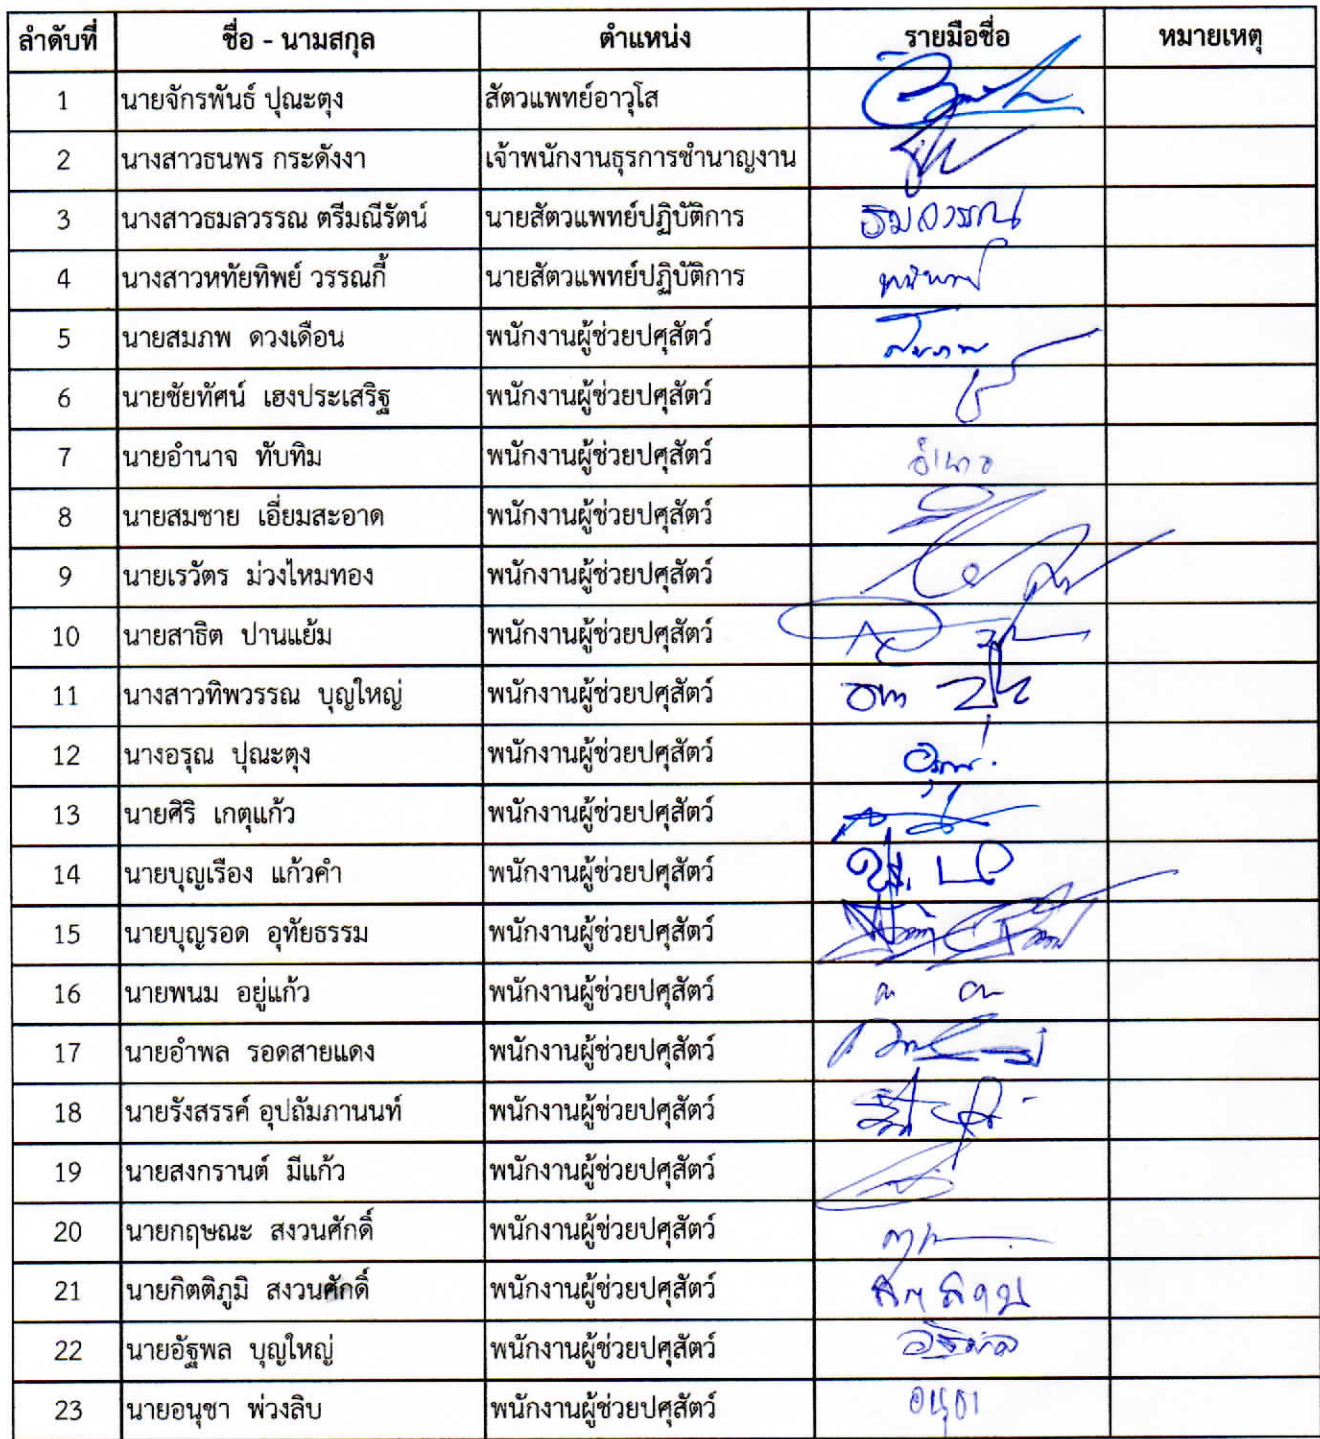 ลำดับที่ ชื่อ - นามสกุล ตำแหน่ง รายมือชื่อ หมายเหตุ
1 นายจักรพันธ์ ปุณะตุง สัตวแพทย์อาวุโส
2 นางสาวธนพร กระดังงา เจ้าพนักงานธุรการชำนาญงาน
3 นางสาวธมลวรรณ ตรีมณีรัตน์ นายสัตวแพทย์ปฏิบัติการ ธมลวรรณ
4 นางสาวหทัยทิพย์ วรรณกี้ นายสัตวแพทย์ปฏิบัติการ
5 นายสมภพ ดวงเดือน พนักงานผู้ช่วยปศุสัตว์
6 นายชัยทัศน์ เฮงประเสริฐ พนักงานผู้ช่วยปศุสัตว์
7 นายอำนาจ ทับทิม พนักงานผู้ช่วยปศุสัตว์ อำนาจ
8 นายสมชาย เอี่ยมสะอาด พนักงานผู้ช่วยปศุสัตว์
9 นายเรวัตร ม่วงไหมทอง พนักงานผู้ช่วยปศุสัตว์
10 นายสาธิต ปานแย้ม พนักงานผู้ช่วยปศุสัตว์
11 นางสาวทิพวรรณ บุญใหญ่ พนักงานผู้ช่วยปศุสัตว์
12 นางอรุณ ปุณะตุง พนักงานผู้ช่วยปศุสัตว์
13 นายศิริ เกตุแก้ว พนักงานผู้ช่วยปศุสัตว์
14 นายบุญเรือง แก้วคำ พนักงานผู้ช่วยปศุสัตว์
15 นายบุญรอด อุทัยธรรม พนักงานผู้ช่วยปศุสัตว์
16 นายพนม อยู่แก้ว พนักงานผู้ช่วยปศุสัตว์
17 นายอำพล รอดสายแดง พนักงานผู้ช่วยปศุสัตว์
18 นายรังสรรค์ อุปถัมภานนท์ พนักงานผู้ช่วยปศุสัตว์
19 นายสงกรานต์ มีแก้ว พนักงานผู้ช่วยปศุสัตว์
20 นายกฤษณะ สงวนศักดิ์ พนักงานผู้ช่วยปศุสัตว์
21 นายกิตติภูมิ สงวนศักดิ์ พนักงานผู้ช่วยปศุสัตว์
22 นายอัฐพล บุญใหญ่ พนักงานผู้ช่วยปศุสัตว์ อัฐพล
23 นายอนุชา พ่วงลิบ พนักงานผู้ช่วยปศุสัตว์ อนุชา